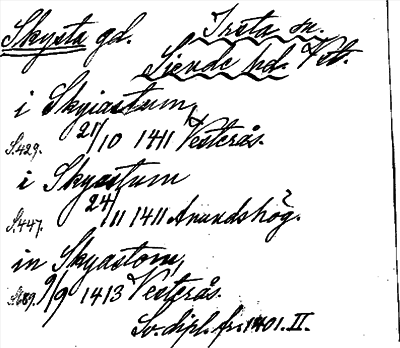 Skysta gd. Irsta sn.
Siende hd. Vstm.
i Skyiastum,
S. 429. 21/10 1411 Vesterås.
i Skyastum
S. 447. 24/11 1411 Anundshög.
in Skyastom,
S. 689. 9/9 1413 Vesterås.
Sv. dipl. fr. 1401. II.